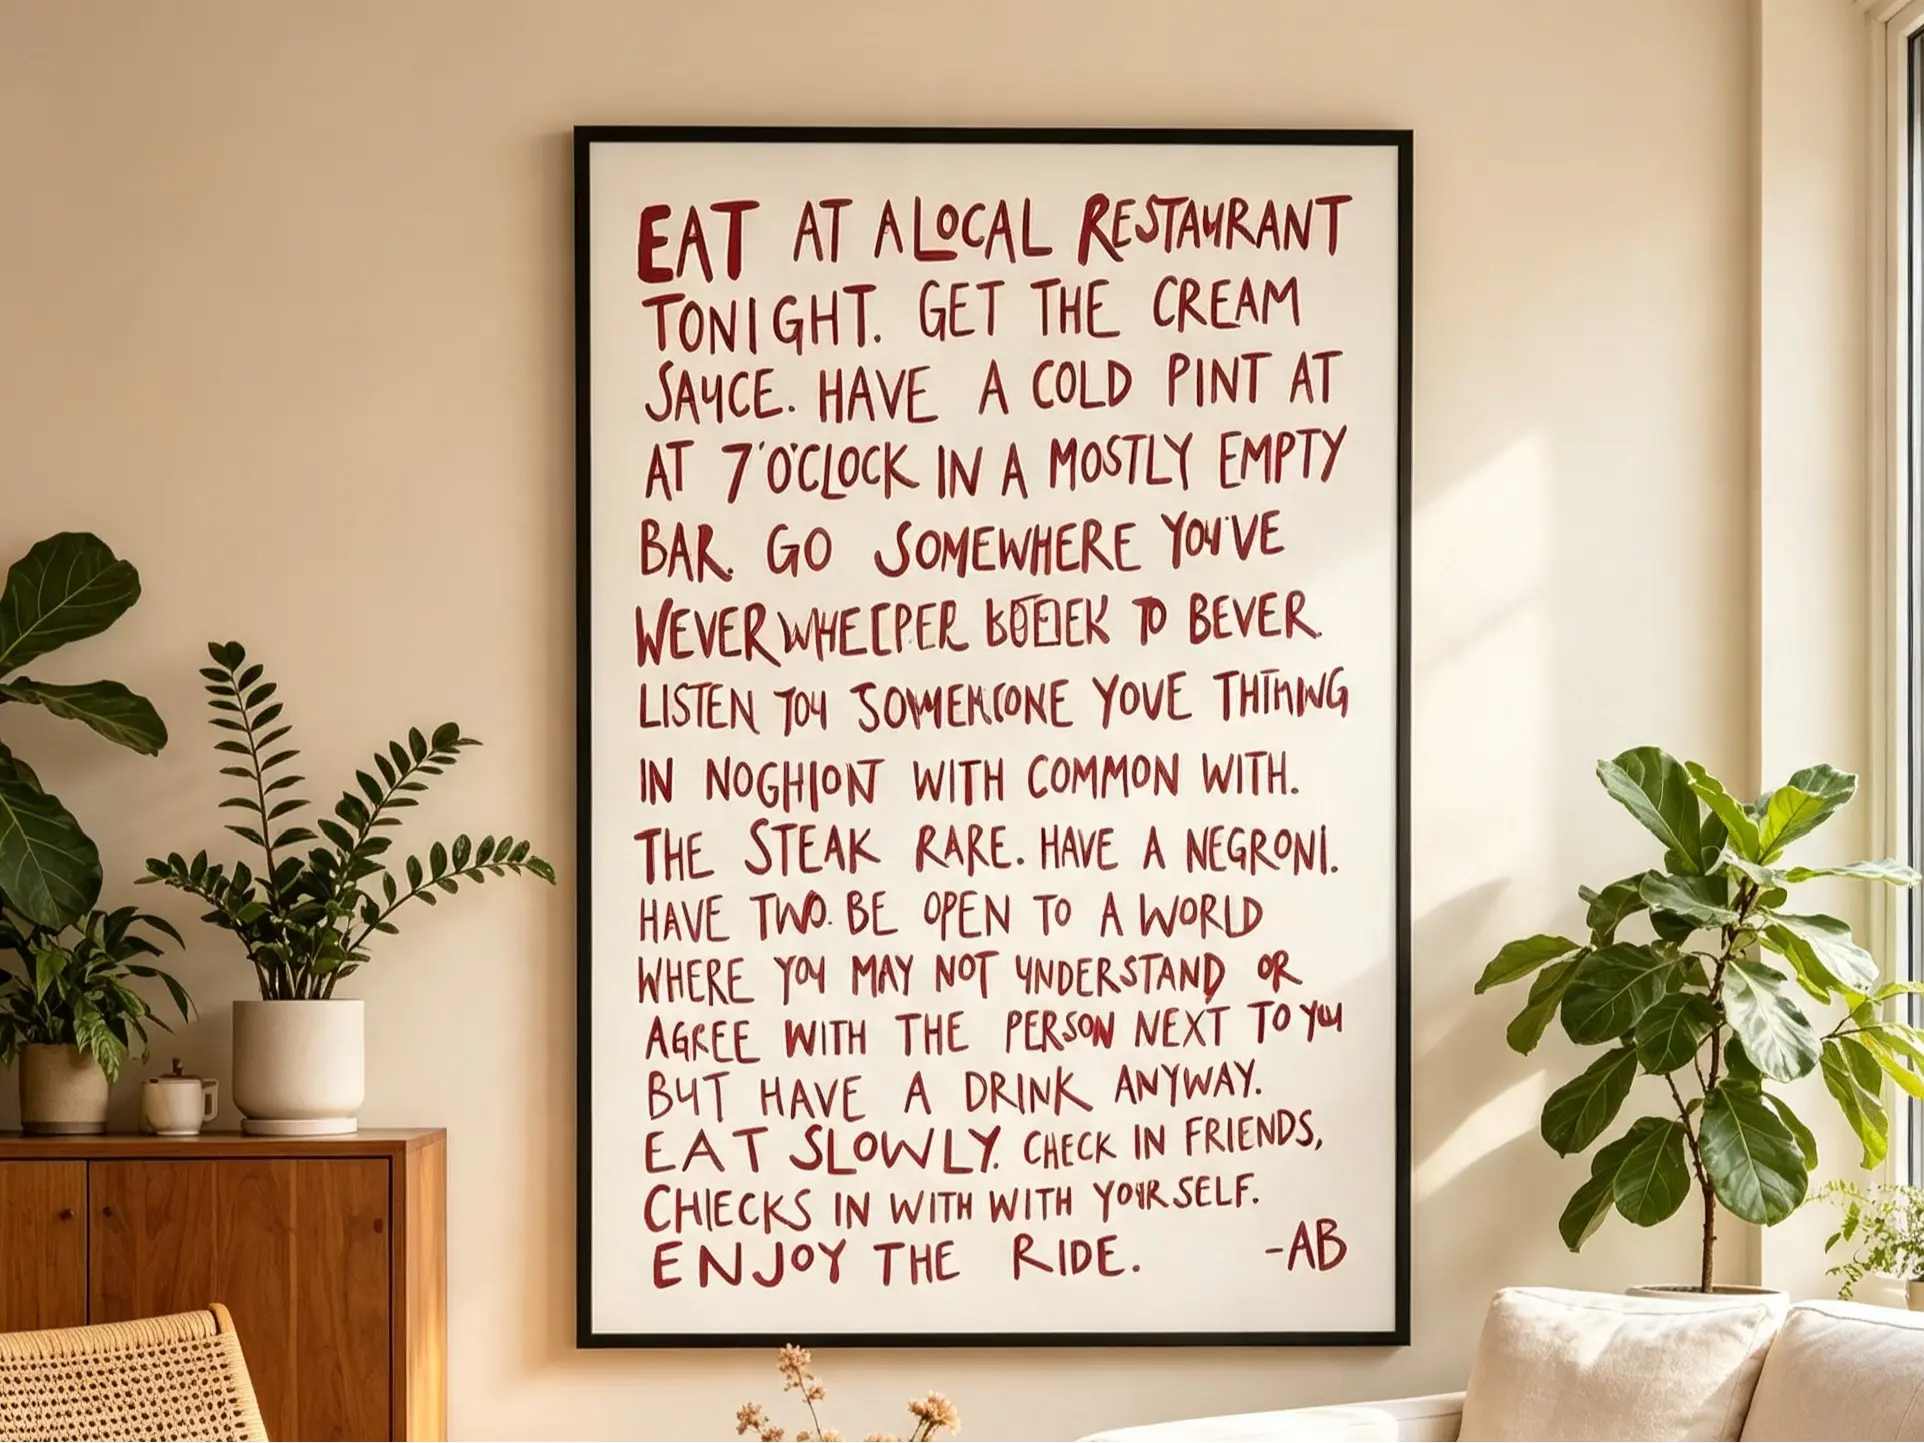 EAT AT A LOCAL RESTAURANT
TONIGHT. GET THE CREAM
SAUCE. HAVE A COLD PINT AT
AT 7'O'CLOCK IN A MOSTLY EMPTY
BAR. GO SOMEWHERE YOU'VE
WEVER TO BEVER.
LISTEN YOU YOVE
IN WITH COMMON WITH.
THE STEAK RARE. HAVE A NEGRONI.
HAVE TWO. BE OPEN TO A WORLD
WHERE YOU MAY NOT UNDERSTAND OR
AGREE WITH THE PERSON NEXT TO YOU
BUT HAVE A DRINK ANYWAY.
EAT SLOWLY. CHECK IN FRIENDS,
CHIECKS IN WITH WITH YOURSELF.
ENJOY THE RIDE. -AB